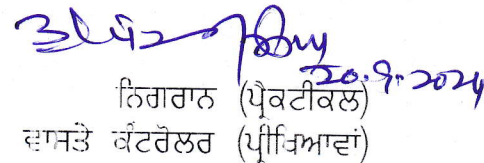 20.9.2024
ਨਿਗਰਾਨ (ਪ੍ਰੈਕਟੀਕਲ)
ਵਾਸਤੇ ਕੰਟਰੋਲਰ (ਪ੍ਰੀਖਿਆਵਾਂ)